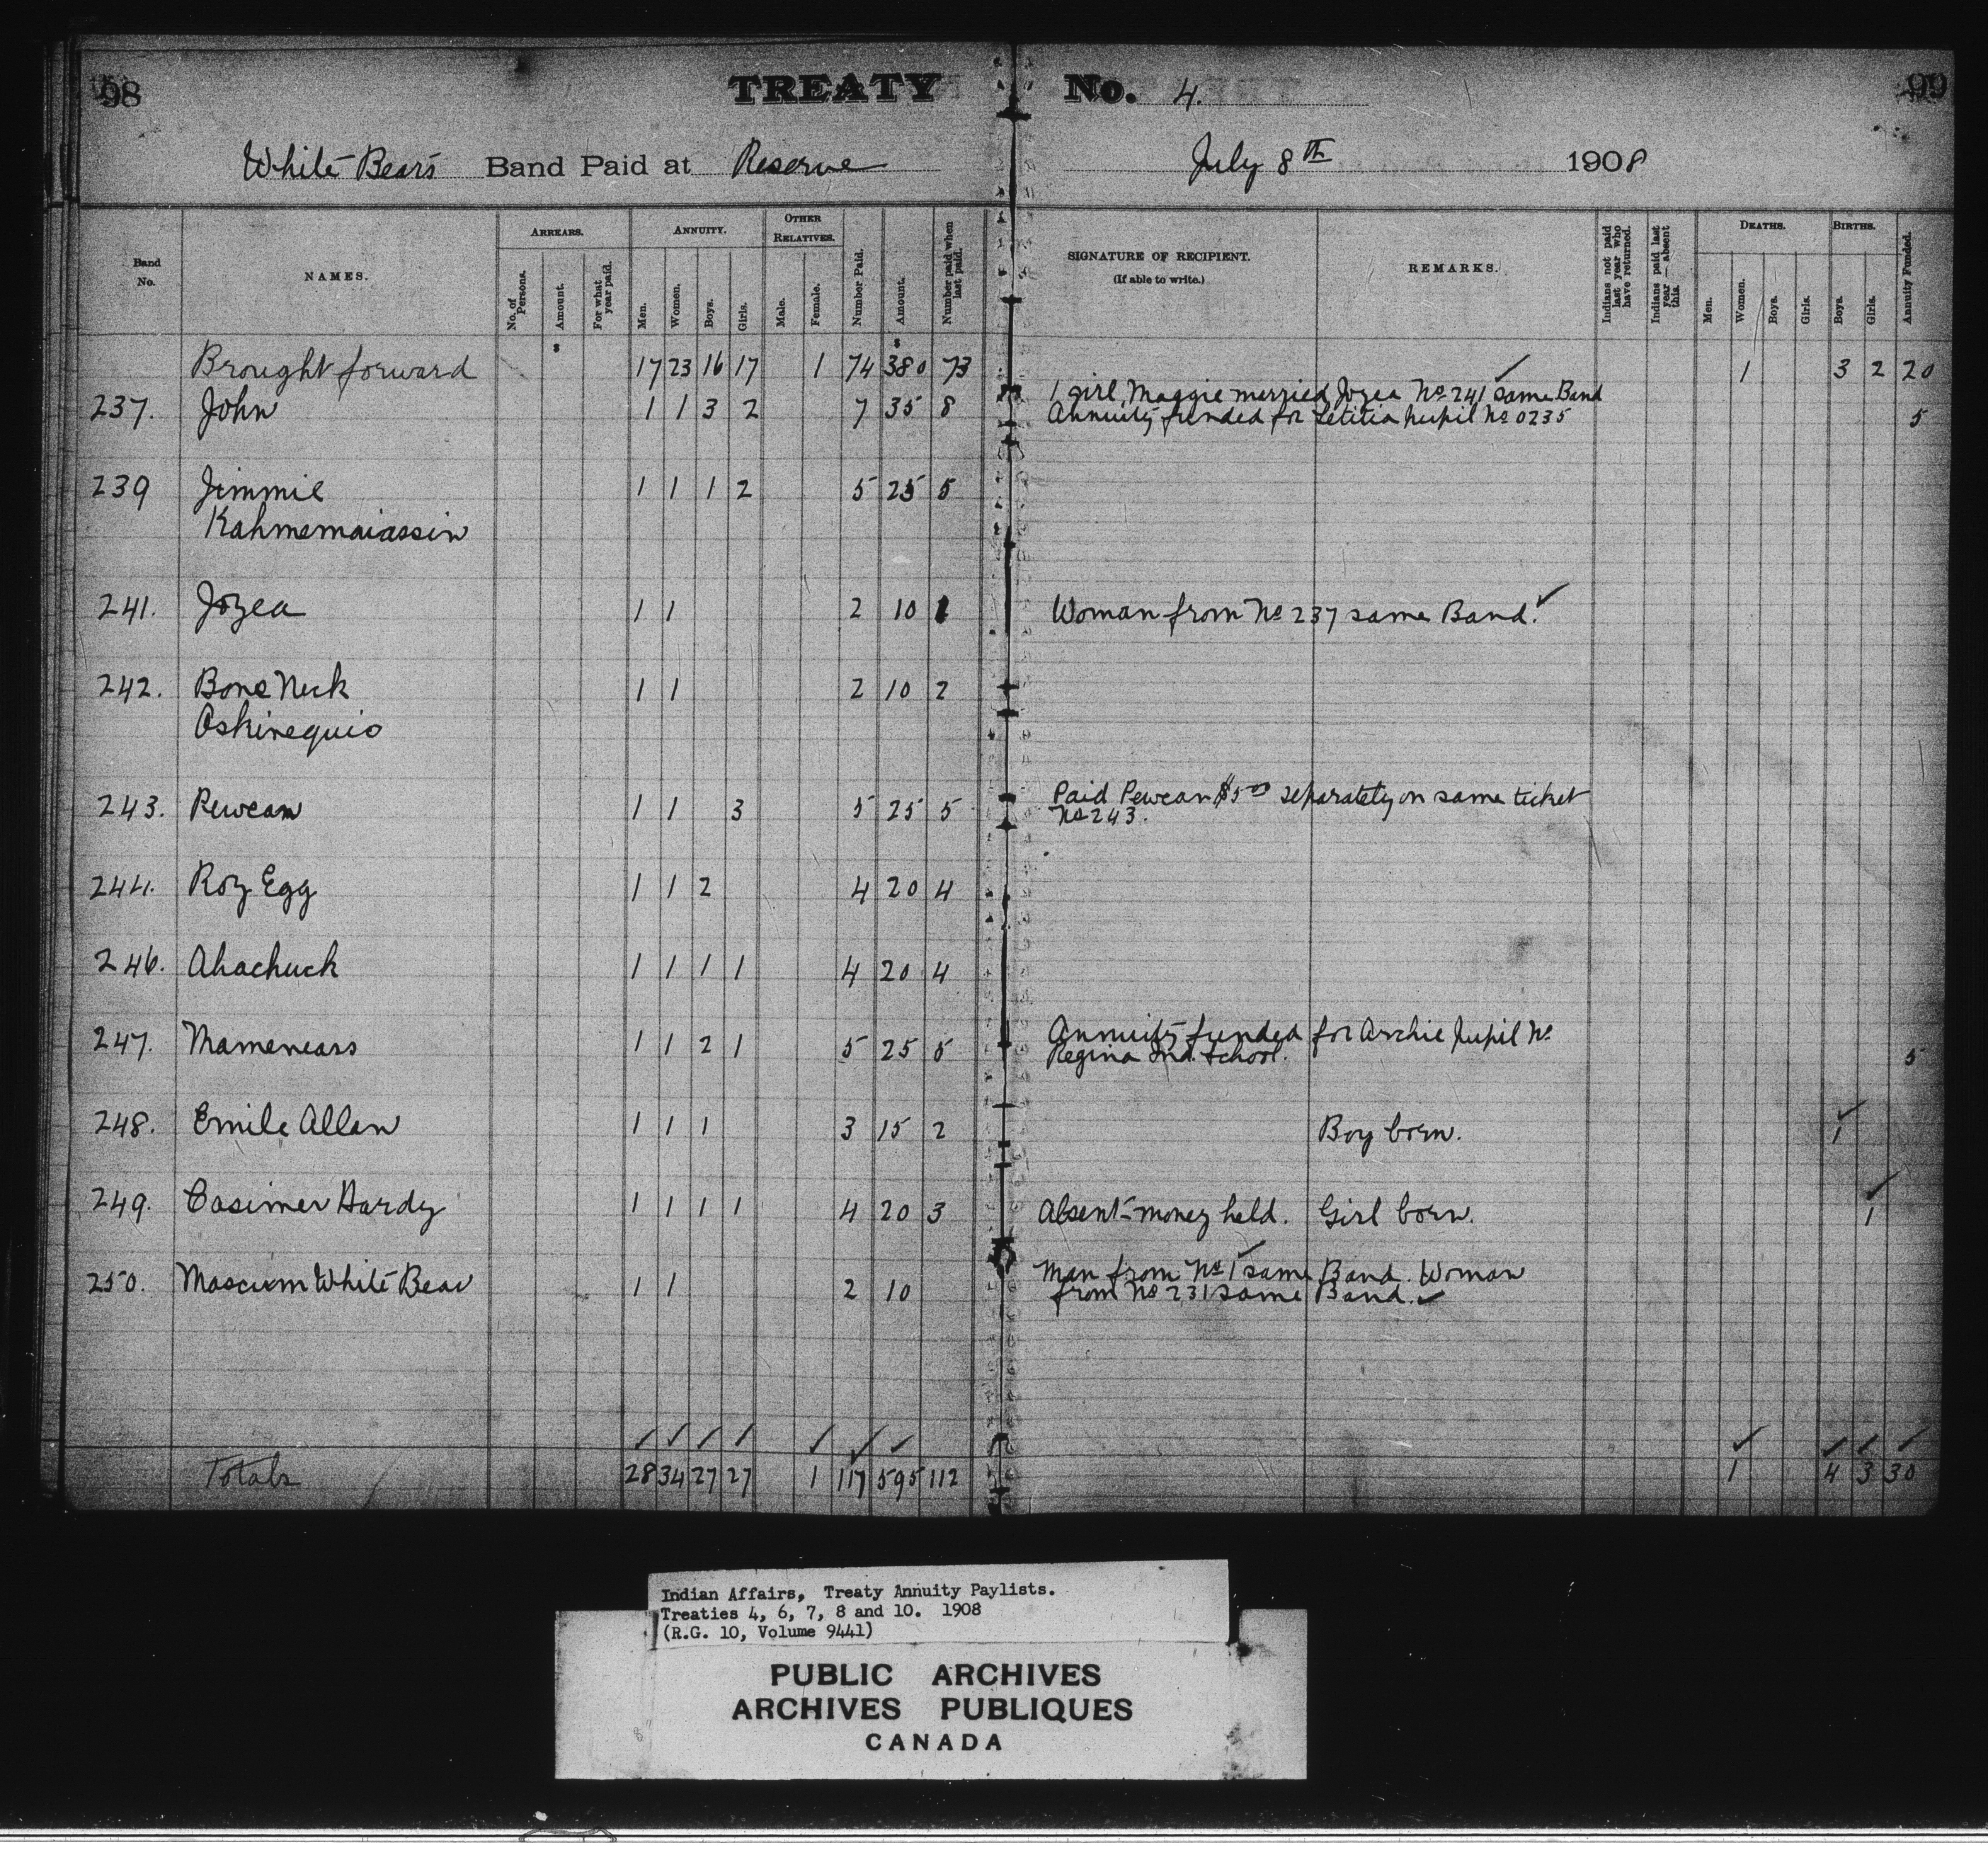 98 TREATY No. 4. 99
White Bear's Band Paid at Reserve July 8th 1908
Band No. NAMES. ARREARS. ANNUITY. OTHER RELATIVES. Number Paid. Amount. Number paid when last paid. SIGNATURE OF RECIPIENT. (If able to write.) REMARKS. Indians not paid last year who have returned. Indians paid last year — absent this. DEATHS. BIRTHS. Annuity Funded.
No. of Persons. Amount. For what year paid. Men. Women. Boys. Girls. Male. Female. Men. Women. Boys. Girls. Boys. Girls.
$ $
Brought forward 17 23 16 17 1 74 380 73 1 3 2 20
237. John 1 1 3 2 7 35 8 1 girl, Maggie married Jozea No 241 ✓ same Band
Annuity funded for Letitia pupil No 0235 5
239 Jimmie 1 1 1 2 5 25 5
Kahmemaiassin
241. Jozea 1 1 2 10 1 Woman from No 237 same Band. ✓
242. Bone Neck 1 1 2 10 2
Oskinequio
243. Pewean 1 1 3 5 25 5 Paid Pewean $5 00 separately on same ticket
No 243.
244. Roy Egg 1 1 2 4 20 4
246. Ahachuck 1 1 1 1 4 20 4
247. Mamenears 1 1 2 1 5 25 5 Annuity funded for Archie pupil No
Regina Ind. School. 5
248. Emile Allan 1 1 1 3 15 2 Boy born. ✓ 1
249. Casimer Hardy 1 1 1 1 4 20 3 Absent - money held. Girl born. ✓ 1
250. Mascum White Bear 1 1 2 10 Man from No 1 ✓ same Band. Woman
from No 231 same Band. ✓
✓ ✓ ✓ ✓ ✓ ✓ ✓ ✓ ✓ ✓ ✓
Totals 28 34 27 27 1 117 595 112 1 4 3 30
Indian Affairs, Treaty Annuity Paylists.
Treaties 4, 6, 7, 8 and 10. 1908
(R.G. 10, Volume 9441)
PUBLIC ARCHIVES
ARCHIVES PUBLIQUES
CANADA